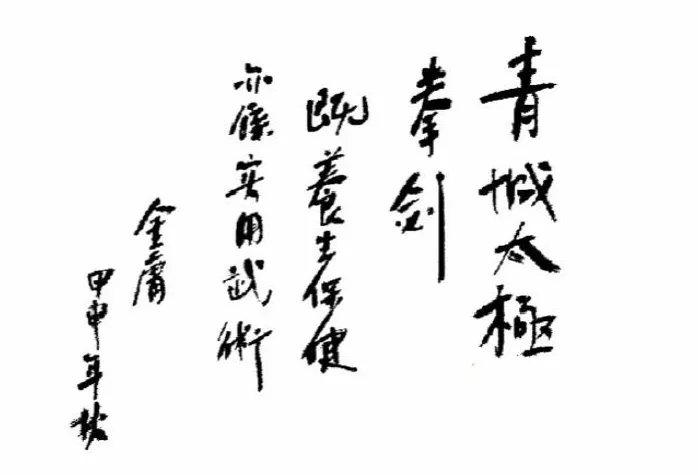 青城太極
拳劍
既養生保健
亦係實用武術
金庸
甲申年秋